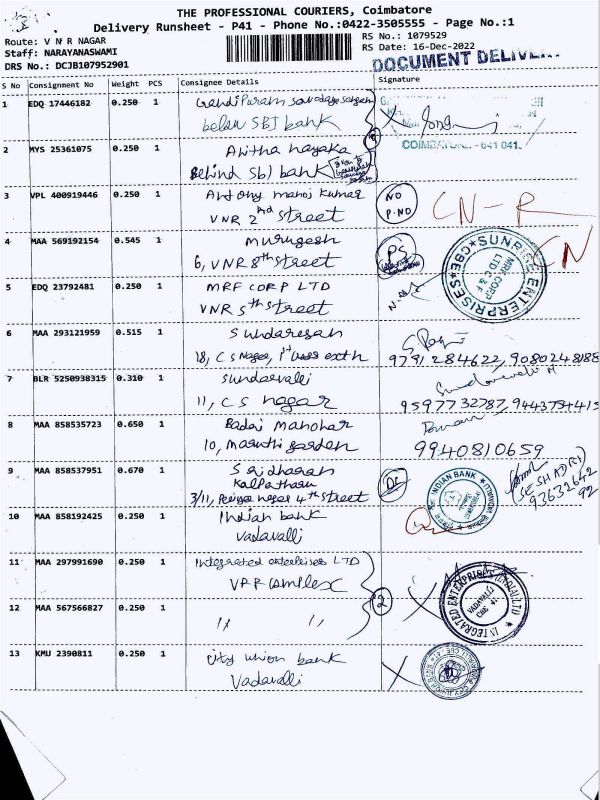 THE PROFESSIONAL COURIERS, Coimbatore
Delivery Runsheet - P41 - Phone No.:0422-3505555 - Page No.:1
Route: V N R NAGAR
Staff: NARAYANASWAMI
DRS No.: DCJB107952901
RS No.: 1079529
RS Date: 16-Dec-2022
DOCUMENT DELIVE
S No Consignment No Weight PCS Consignee Details Signature
1 EDQ 17446182 0.250 1 Gandipuram
below SBI bank
COIMBATORE - 641 041.
2 MYS 25361075 0.250 1 Anitha nayaka
Behind SbI bank
3 VPL 400919446 0.250 1 Antony manoj kumar NO
VNR 2nd street P.NO CN-R
4 MAA 569192154 0.545 1 murugesh PS CN
6, VNR 8th street
SUNRISE ENTERPRISES * CBE *
MRF CORP LTD C & F
5 EDQ 23792481 0.250 1 MRF CORP LTD
VNR 5th street
6 MAA 293121959 0.515 1 Sundaresan
18, C S Nagar, 1st cross extn 9791284622, 9080248188
7 BLR 5250938315 0.310 1 Sundarvalli
11, C S nagar 9597732787,
8 MAA 858535723 0.650 1 Badai Manohar
10, Maruthi garden 9940810659
9 MAA 858537951 0.670 1 Sridharan
Kalpatharu
3/11, Periyar nagar 4th street
SESHADRI
93632642
92
INDIAN BANK
10 MAA 858192425 0.250 1 Indian bank
Vadavalli
11 MAA 297991690 0.250 1 Integrated enterprises LTD
VPR complex
2
INTEGRATED ENTERPRISES (INDIA) LTD
VADAVALLI
CBE - 41
12 MAA 567566827 0.250 1 " "
13 KMU 2390811 0.250 1 City union bank
Vadavalli